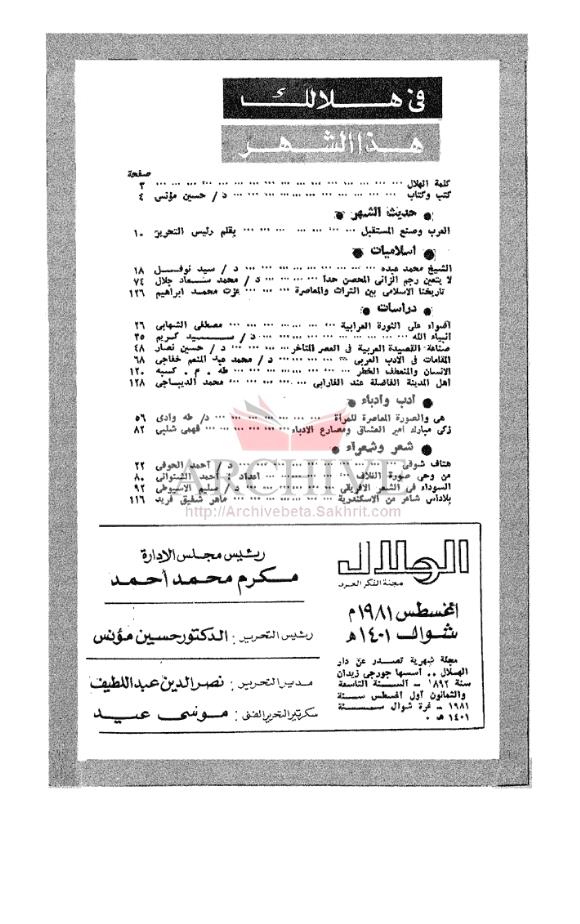 في هلالك
هذا الشهر
صفحة
كلمة الهلال ... ٣
كتب وكتاب ... د / حسين مؤنس ٤
● حديث الشهر
العرب وصنع المستقبل ... بقلم رئيس التحرير ١٠
● اسلاميات
الشيخ محمد عبده ... د / سيد نوفل ١٨
لا يتعين رجم الزاني المحصن حدا ... د / محمد سعاد جلال ٧٤
تاريخنا الاسلامي بين التراث والمعاصرة ... عزت محمد ابراهيم ١٢٦
● دراسات
أضواء على الثورة العرابية ... مصطفى الشهابي ٢٦
انبياء الله ... د / سيد كريم ٣٥
صناعة القصيدة العربية في العصر المتأخر ... د / حسين نصار ٤٨
المقامات في الادب العربي ... د / محمد عبد المنعم خفاجي ٦٨
الانسان والمنعطف الخطر ... طه . م . كسبه ١٢٠
اهل المدينة الفاضلة عند الفارابي ... محمد الديباجي ١٢٨
● أدب وأدباء
هي والصورة المعاصرة للمرأة ... د / طه وادي ٥٦
زكي مبارك أمير العشاق ومصارع الادباء ... فهمي شلبي ٨٢
● شعر وشعراء
هتاف شوقي ... د / أحمد الحوفي ٢٢
من وحي صورة الغلاف ... اعداد / أحمد الشنتوانى ٨٠
السوداء في الشعر الافريقي ... د / سليم الاسيوطي ٩٢
بلاداس شاعر من الاسكندرية ... ماهر شفيق فريد ١١٦
ARCHIVE
http://Archivebeta.Sakhrit.com
الهلال
مجلة الفكر الحر
اغسطس ١٩٨١ م
شوال ١٤٠١ هـ
مجلة شهرية تصدر عن دار
الهلال .. أسسها جورجي زيدان
سنة ١٨٩٢ - السنة التاسعة
والثمانون أول اغسطس سنة
١٩٨١ - غرة شوال سنة
١٤٠١ هـ .
رئيس مجلس الإدارة
مكرم محمد أحمد
رئيس التحرير : الدكتور حسين مؤنس
مدير التحرير : نصر الدين عبد اللطيف
سكرتير التحرير الفني : موسى عبيد